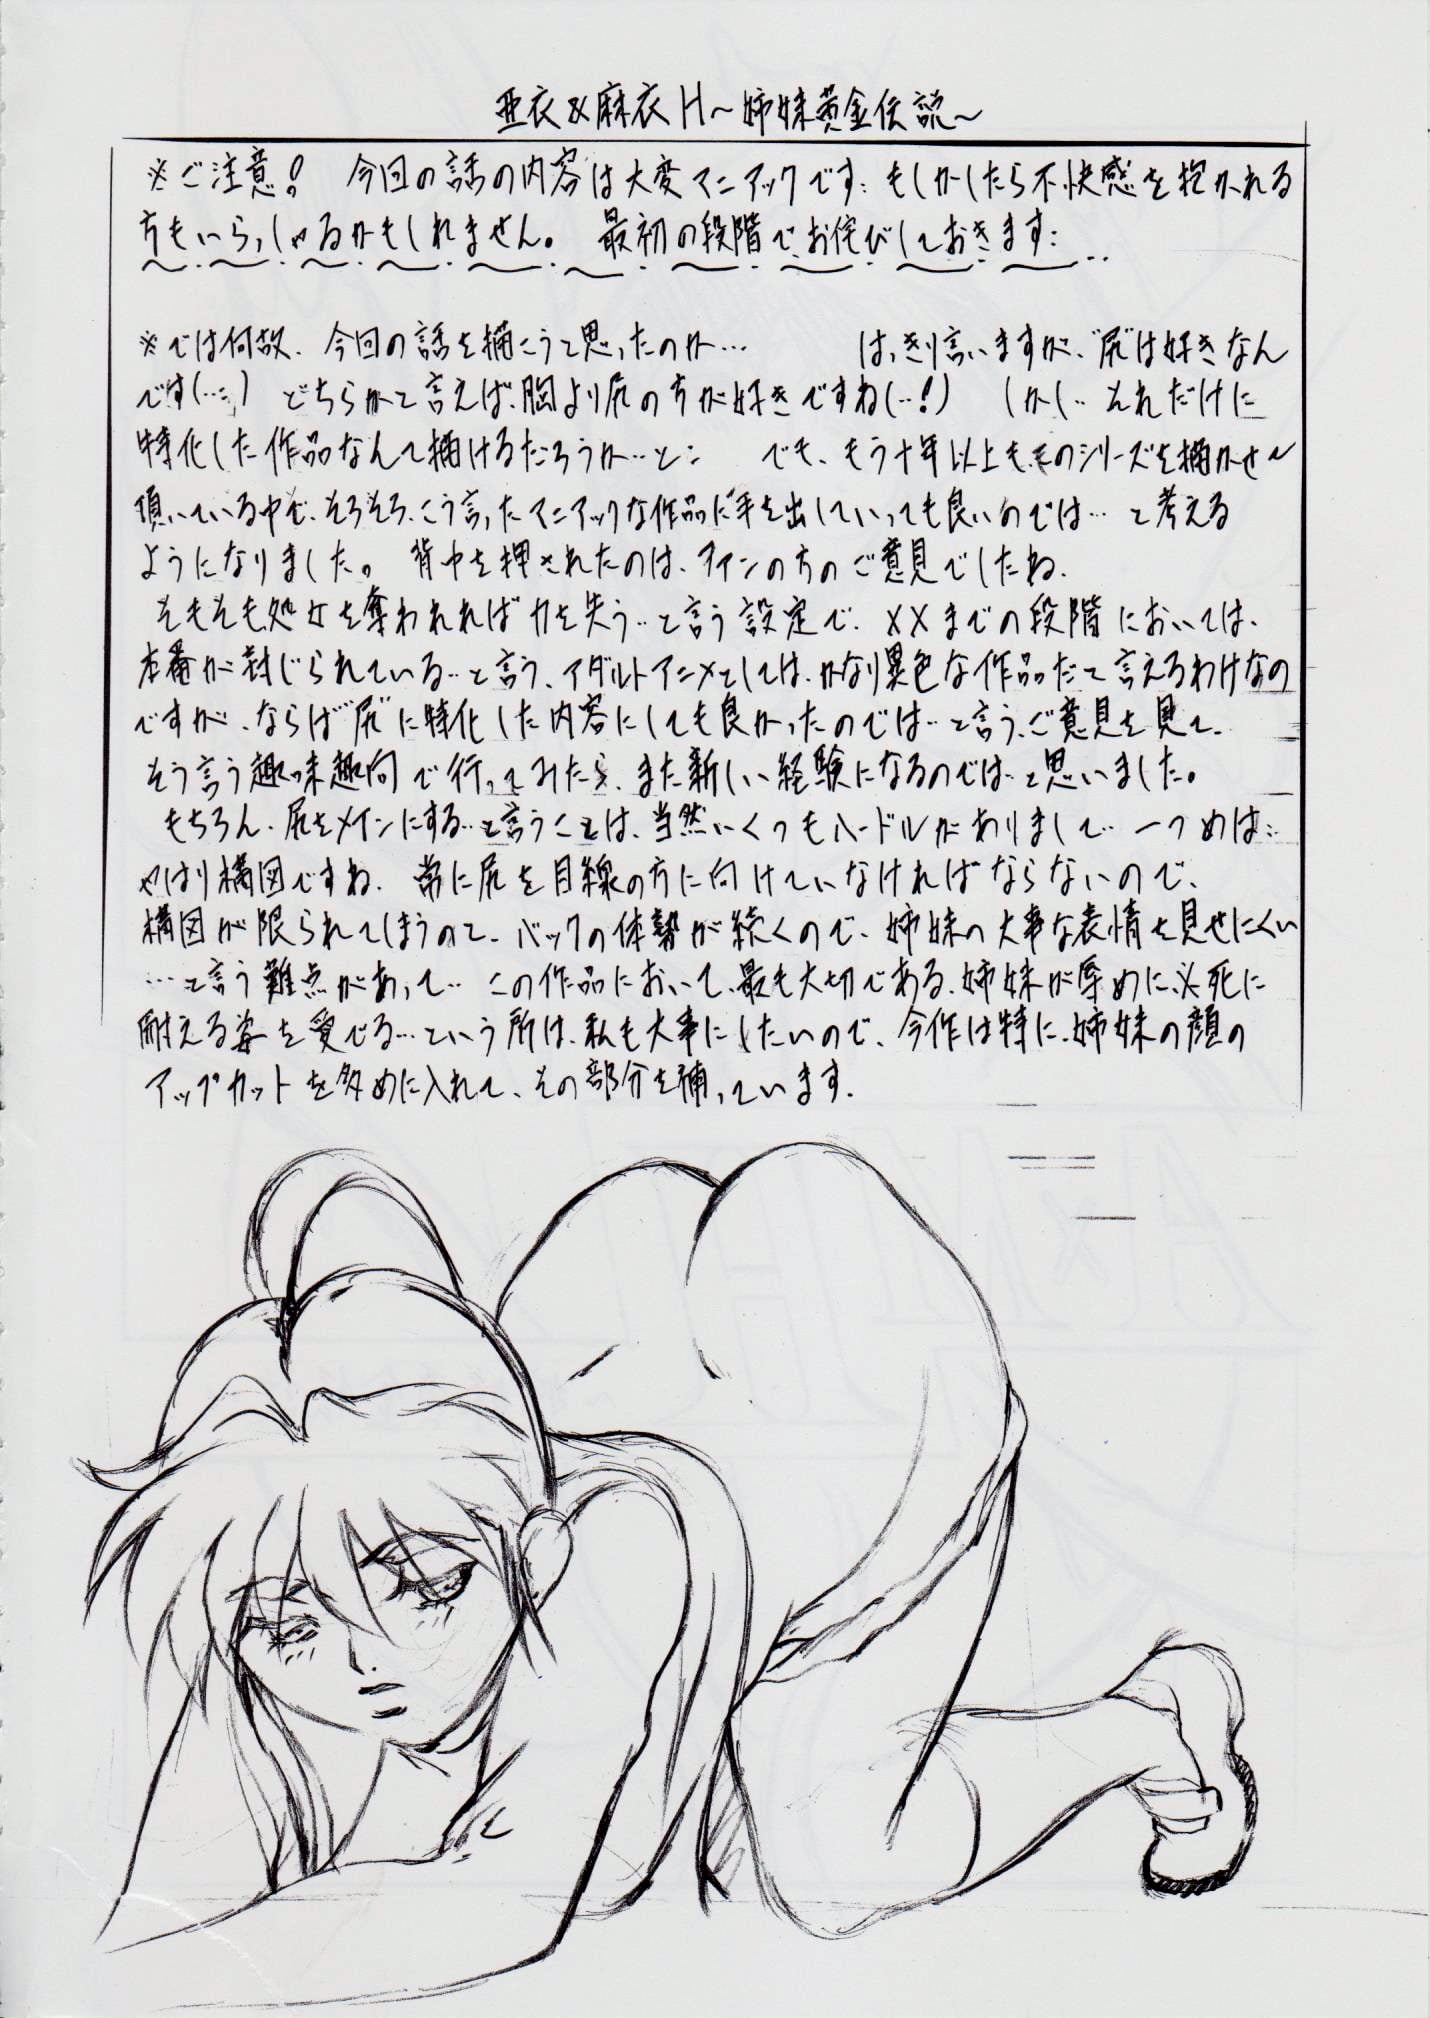 亜衣&麻衣H〜姉妹黄金伝説〜
※ご注意! 今回の話の内容は大変マニアックです… もしかしたら不快感を抱かれる
方もいらっしゃるかもしれません。 最初の段階でお詫びしておきます…
※では何故、今回の話を描こうと思ったのか… はっきり言いますが、”尻”は好きなん
です(…;) どちらかと言えば、胸より尻の方が好きですね(…!) しかし… それだけに
特化した作品なんて描けるだろうか…と… でも、もう十年以上もこのシリーズを描かせて
頂いている中で、そろそろ、こう言ったマニアックな作品に手を出していっても良いのでは… と考える
ようになりました。 背中を押されたのは、ファンの方のご意見でしたね、
そもそも処女を奪われれば力を失う…と言う設定で、××までの段階においては、
本番が封じられている…と言う、アダルトアニメとしては、かなり異色な作品だと言えるわけなの
ですが、ならば”尻”に特化した内容にしても良かったのでは…と言う、ご意見を見て、
そう言う趣味趣向で行ってみたら、また新しい経験になるのでは…と思いました。
もちろん、尻をメインにする…と言うことは、当然いくつもハードルがありまして… 一つめは…
やはり構図ですね、 常に尻を目線の方に向けていなければならないので、
構図が限られてしまうのと、バックの体勢が続くので、姉妹の大事な表情を見せにくい
…と言う難点があって… この作品において、最も大切である、姉妹が辱めに必死に
耐える姿を愛でる…という所は、私も大事にしたいので、今作は特に、姉妹の顔の
アップカットを多めに入れて、その部分を補っています.